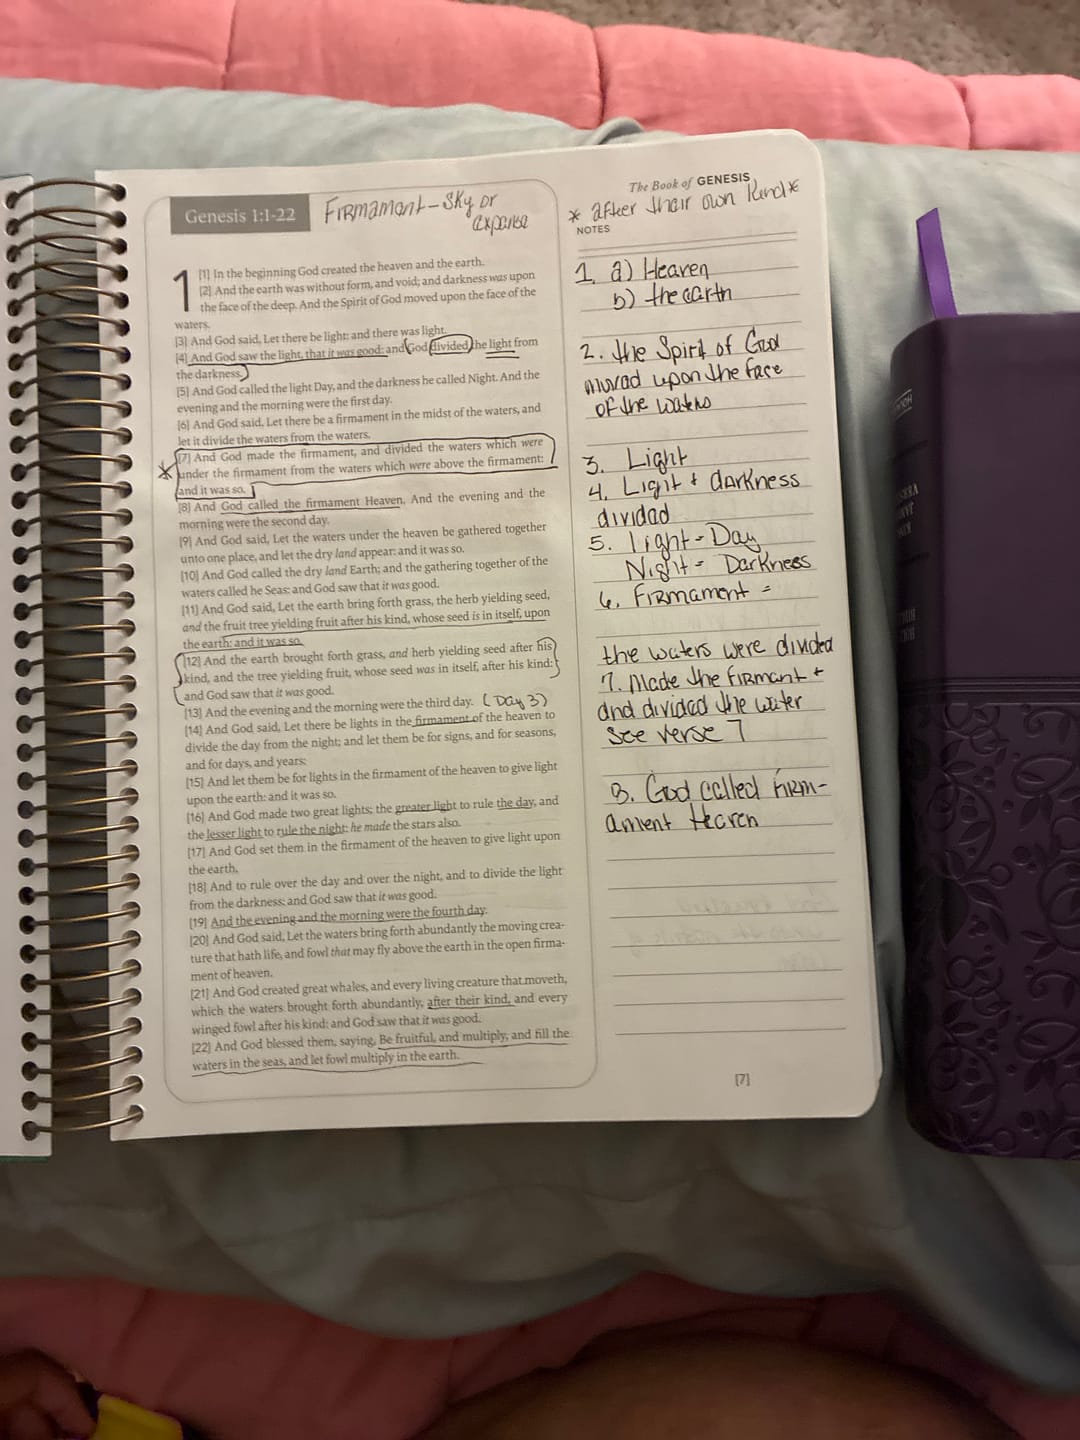 Genesis 1:1-22
FIRMamant - Sky or
expanse
The Book of GENESIS
* after their own Kind *
NOTES
1 [1] In the beginning God created the heaven and the earth.
[2] And the earth was without form, and void; and darkness was upon
the face of the deep. And the Spirit of God moved upon the face of the
waters.
[3] And God said, Let there be light: and there was light.
[4] And God saw the light, that it was good: and God divided the light from
the darkness.
[5] And God called the light Day, and the darkness he called Night. And the
evening and the morning were the first day.
[6] And God said, Let there be a firmament in the midst of the waters, and
let it divide the waters from the waters.
[7] And God made the firmament, and divided the waters which were
under the firmament from the waters which were above the firmament:
and it was so.
[8] And God called the firmament Heaven. And the evening and the
morning were the second day.
[9] And God said, Let the waters under the heaven be gathered together
unto one place, and let the dry land appear: and it was so.
[10] And God called the dry land Earth; and the gathering together of the
waters called he Seas: and God saw that it was good.
[11] And God said, Let the earth bring forth grass, the herb yielding seed,
and the fruit tree yielding fruit after his kind, whose seed is in itself, upon
the earth: and it was so.
[12] And the earth brought forth grass, and herb yielding seed after his
kind, and the tree yielding fruit, whose seed was in itself, after his kind:
and God saw that it was good.
[13] And the evening and the morning were the third day. (Day 3)
[14] And God said, Let there be lights in the firmament of the heaven to
divide the day from the night; and let them be for signs, and for seasons,
and for days, and years:
[15] And let them be for lights in the firmament of the heaven to give light
upon the earth: and it was so.
[16] And God made two great lights; the greater light to rule the day, and
the lesser light to rule the night: he made the stars also.
[17] And God set them in the firmament of the heaven to give light upon
the earth,
[18] And to rule over the day and over the night, and to divide the light
from the darkness: and God saw that it was good.
[19] And the evening and the morning were the fourth day.
[20] And God said, Let the waters bring forth abundantly the moving crea-
ture that hath life, and fowl that may fly above the earth in the open firma-
ment of heaven.
[21] And God created great whales, and every living creature that moveth,
which the waters brought forth abundantly, after their kind, and every
winged fowl after his kind: and God saw that it was good.
[22] And God blessed them, saying, Be fruitful, and multiply, and fill the
waters in the seas, and let fowl multiply in the earth.
1. a) Heaven
b) the earth
2. the Spirit of God
moved upon the face
of the waters
3. Light
4. Light + darkness
divided
5. light - Day
Night - Darkness
6. Firmament =
the waters were divided
7. Made the firmant +
and divided the water
See verse 7
8. God called firm-
ament Heaven
[7]